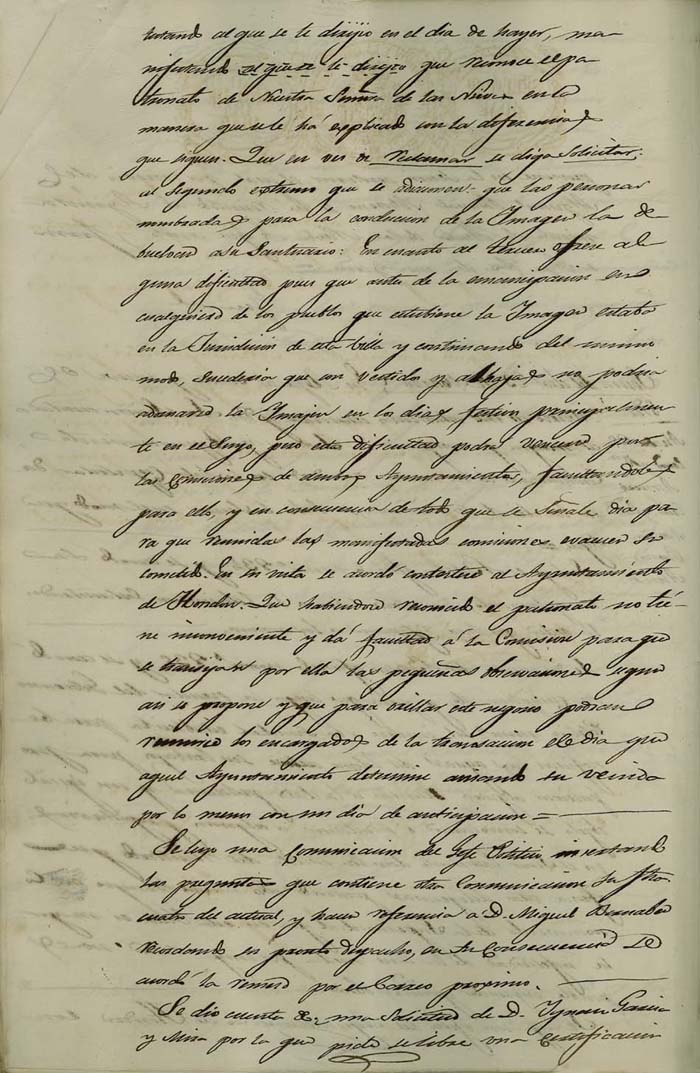 testando al que se le dirijio en el dia de hayer, ma-
nifestando el que se le dirijio que reconoce el pa-
tronato de Nuestra Señora de las Nieves en la
manera que se le há explicado con las diferencias
que siguen. Que en ves de reclamar se diga Solicitar:
al Segundo extremo que se adicionen: que las personas
nombradas para la conducion de la Imagen la de-
buelvan a su Santuario: En cuanto al tercero ofrece al-
guna dificultad pues que antes de la emancipacion en
cualquiera de los pueblos que estubiese la Imagen estaba
en la Jurisdicion de esta billa y continuando del mismo
modo, Sucederia que con vestidos y alhajas no podria
adornarse la Imajen en los dias festivos principalmen-
te en el Suyo, pero esta dificultad podra vencerse por
las Comisiones de ambos Ayuntamientos, facultandoles
para ello, y en consecuencia de todo que se Señale dia pa-
ra que reunidas las manifestadas comisiones evacuen su
cometido. En su vista se acordó contestar al Ayuntamiento
de Hondon. Que habiendose reconocido el patronato no tie-
ne inconveniente y dá facultad á la Comision para que
se transijan por ella las pequeñas observaciones segun
asi se propone y que para orillar este negocio podran
reunirse los encargados de la transacion el dia que
aquel Ayuntamiento determine avisando su venida
por lo menos con un dia de anticipacion =
Se leyo una Comunicacion del Gefe Politico insertando
las preguntas que contiene otra Comunicacion Su fha
cuatro del actual, y hacen referencia a D. Miguel Bernabeu
recordando su pronto despacho, en Su Consecuencia Se
acordó la remesa por el Correo proximo.
Se dio cuenta de una Solicitud de D. Ygnacio Garcia
y Mira por la que pide se libre una Certificacion